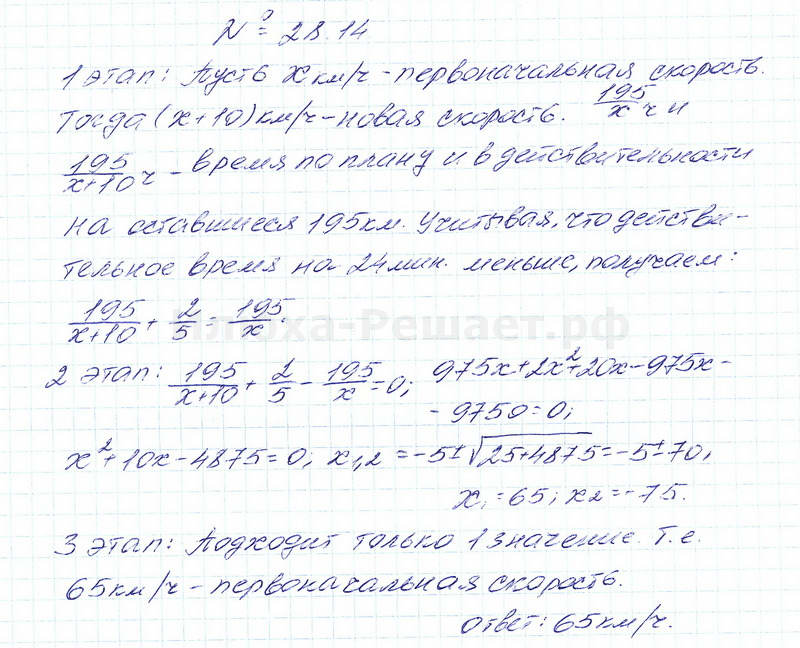 № 28.14
1 этап: Пусть x км/ч - первоначальная скорость.
Тогда (x+10) км/ч - новая скорость. 195/x ч и
195/(x+10) ч - время по плану и в действительности
на оставшиеся 195 км. Учитывая, что действи-
тельное время на 24 мин. меньше, получаем:
195/(x+10) + 2/5 = 195/x.
-Решает.рф
2 этап: 195/(x+10) + 2/5 - 195/x = 0; 975x+2x²+20x-975x-
- 9750=0;
x²+10x-4875=0; x₁,₂ = -5±√(25+4875) = -5±70,
x₁=65; x₂=-75.
3 этап: Подходит только 1 значение. Т.е.
65 км/ч - первоначальная скорость.
Ответ: 65 км/ч.